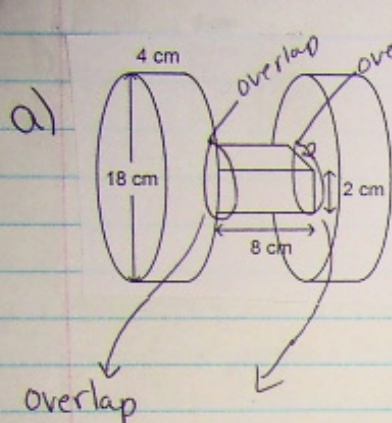 4 cm
overlap
ove
a)
18 cm
2 cm
8 cm
overlap